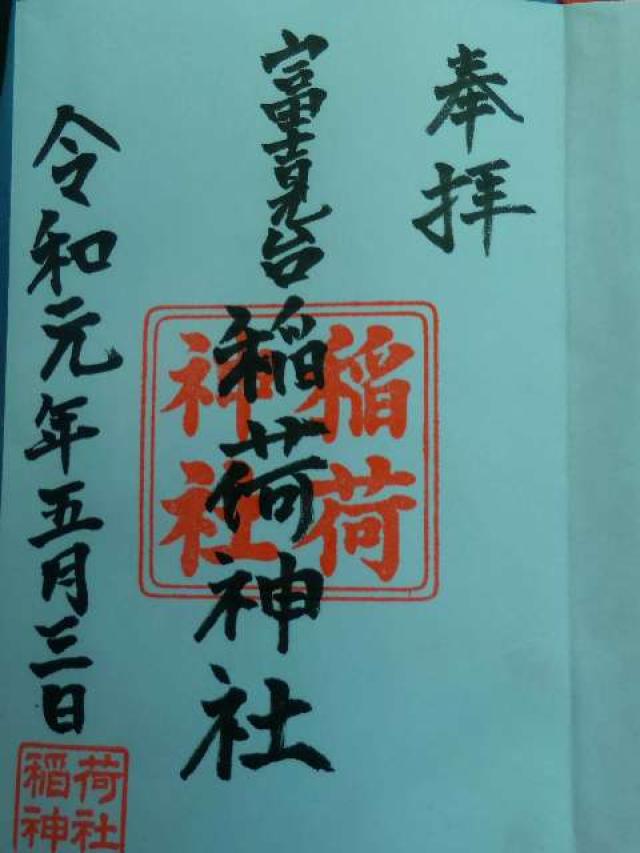 奉拝
富士見台稲荷神社
稲荷神社
令和元年五月三日
稲荷神社